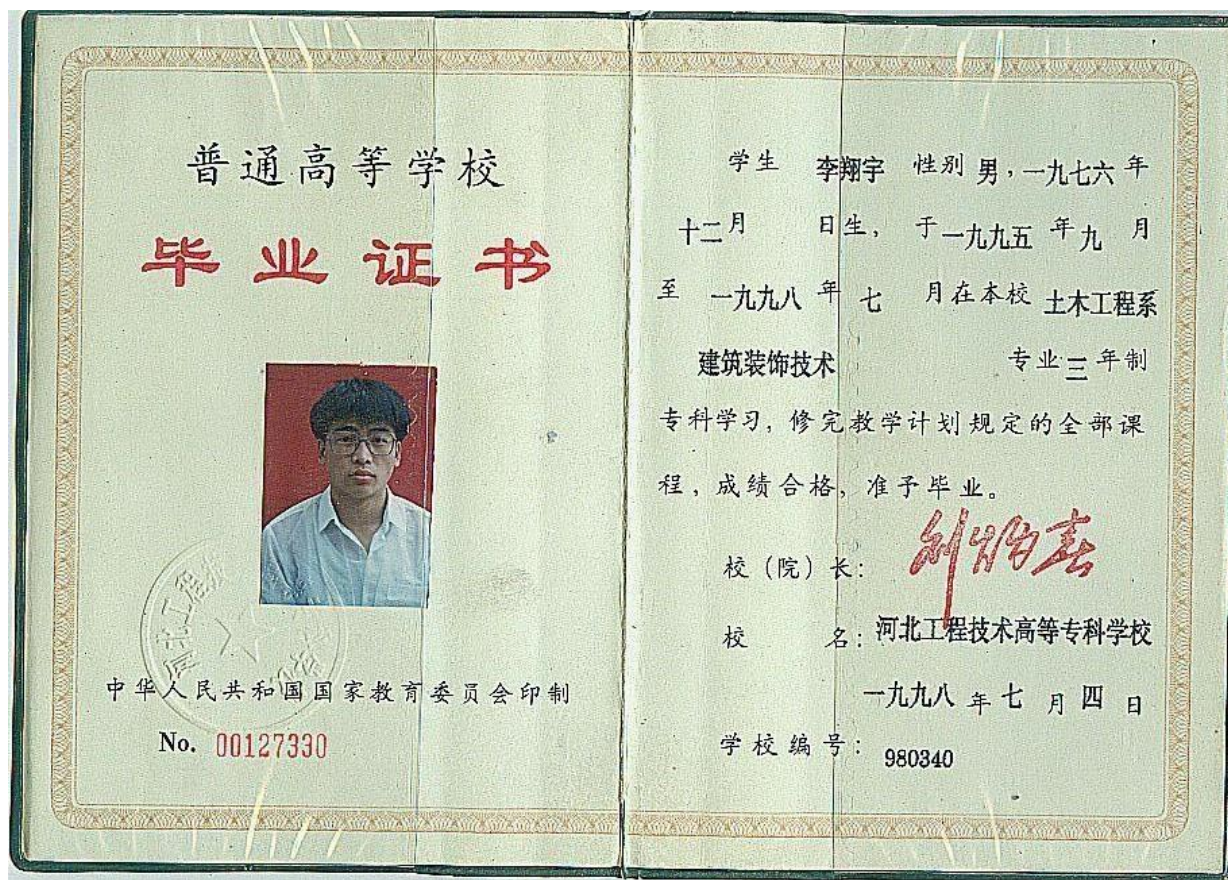 普通高等学校
毕业证书
中华人民共和国国家教育委员会印制
No. 00127330
学生 李翔宇 性别 男，一九七六年
十二月 日生，于一九九五年九月
至 一九九八年七 月在本校 土木工程系
建筑装饰技术 专业三年制
专科学习，修完教学计划规定的全部课
程，成绩合格，准予毕业。
校（院）长：
校 名：河北工程技术高等专科学校
一九九八年七月四日
学校编号：980340